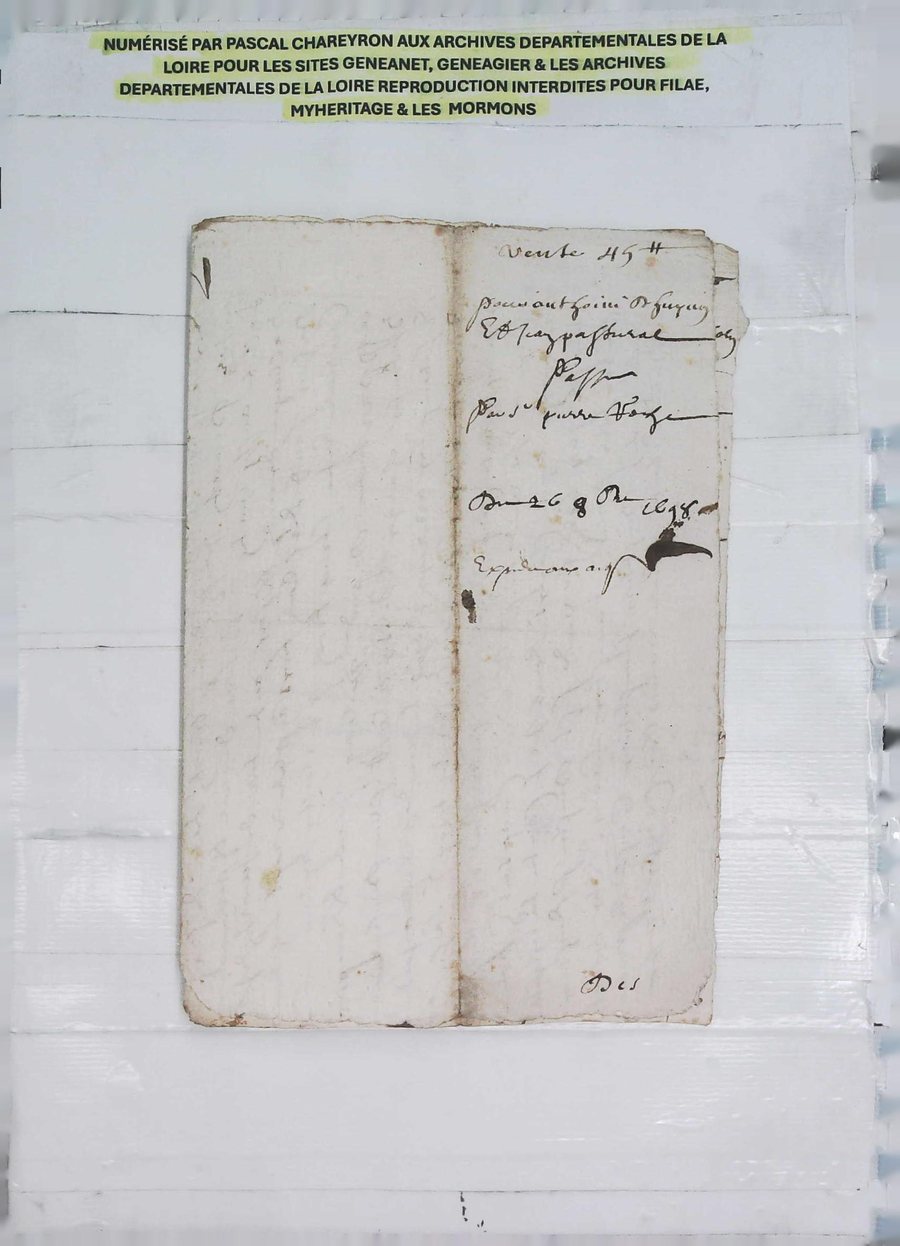 NUMÉRISÉ PAR PASCAL CHAREYRON AUX ARCHIVES DEPARTEMENTALES DE LA
LOIRE POUR LES SITES GENEANET, GENEAGIER & LES ARCHIVES
DEPARTEMENTALES DE LA LOIRE REPRODUCTION INTERDITES POUR FILAE,
MYHERITAGE & LES MORMONS
Vente 45 ₶
pour anthoine
Et
Passe
Par sr pierre
Du 26 8bre 1698
Des